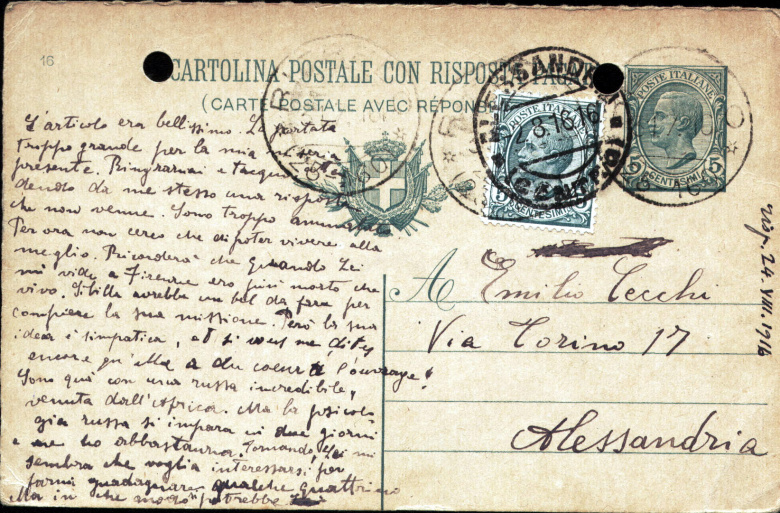 16
CARTOLINA POSTALE CON RISPOSTA
(CARTE POSTALE AVEC RÉPONSE
POSTE ITALIANE
5
CENTESIMI
POSTE ITALIANE
5
CENTESIMI
ALESSANDRIA
8.16
L'articolo era bellissimo. La portata
troppo grande per la mia
presente. Ringraziai e tacqui
dendo da me stesso una risposta
che non venne. Sono troppo
Per ora non cerco che di poter vivere alla
meglio. Ricorderà che quando Lei
mi vide a Firenze ero più morto che
vivo. Sibilla avrebbe un bel da fare per
compiere la sua missione. Però la sua
idea è simpatica, et si vous me dites
encore qu'elle a du coeur à l'ouvrage!
Sono quì con una russa incredibile,
venuta dall'Africa. Ma la psicolo
gia russa si impara in due giorni
e ne ho abbastanza. Tornando Lei mi
sembra che voglia interessarsi per
farmi guadagnare qualche quattrino
Ma in che modo potrebbe
A Emilio Cecchi
Via Torino 17
Alessandria
24. VIII. 1916